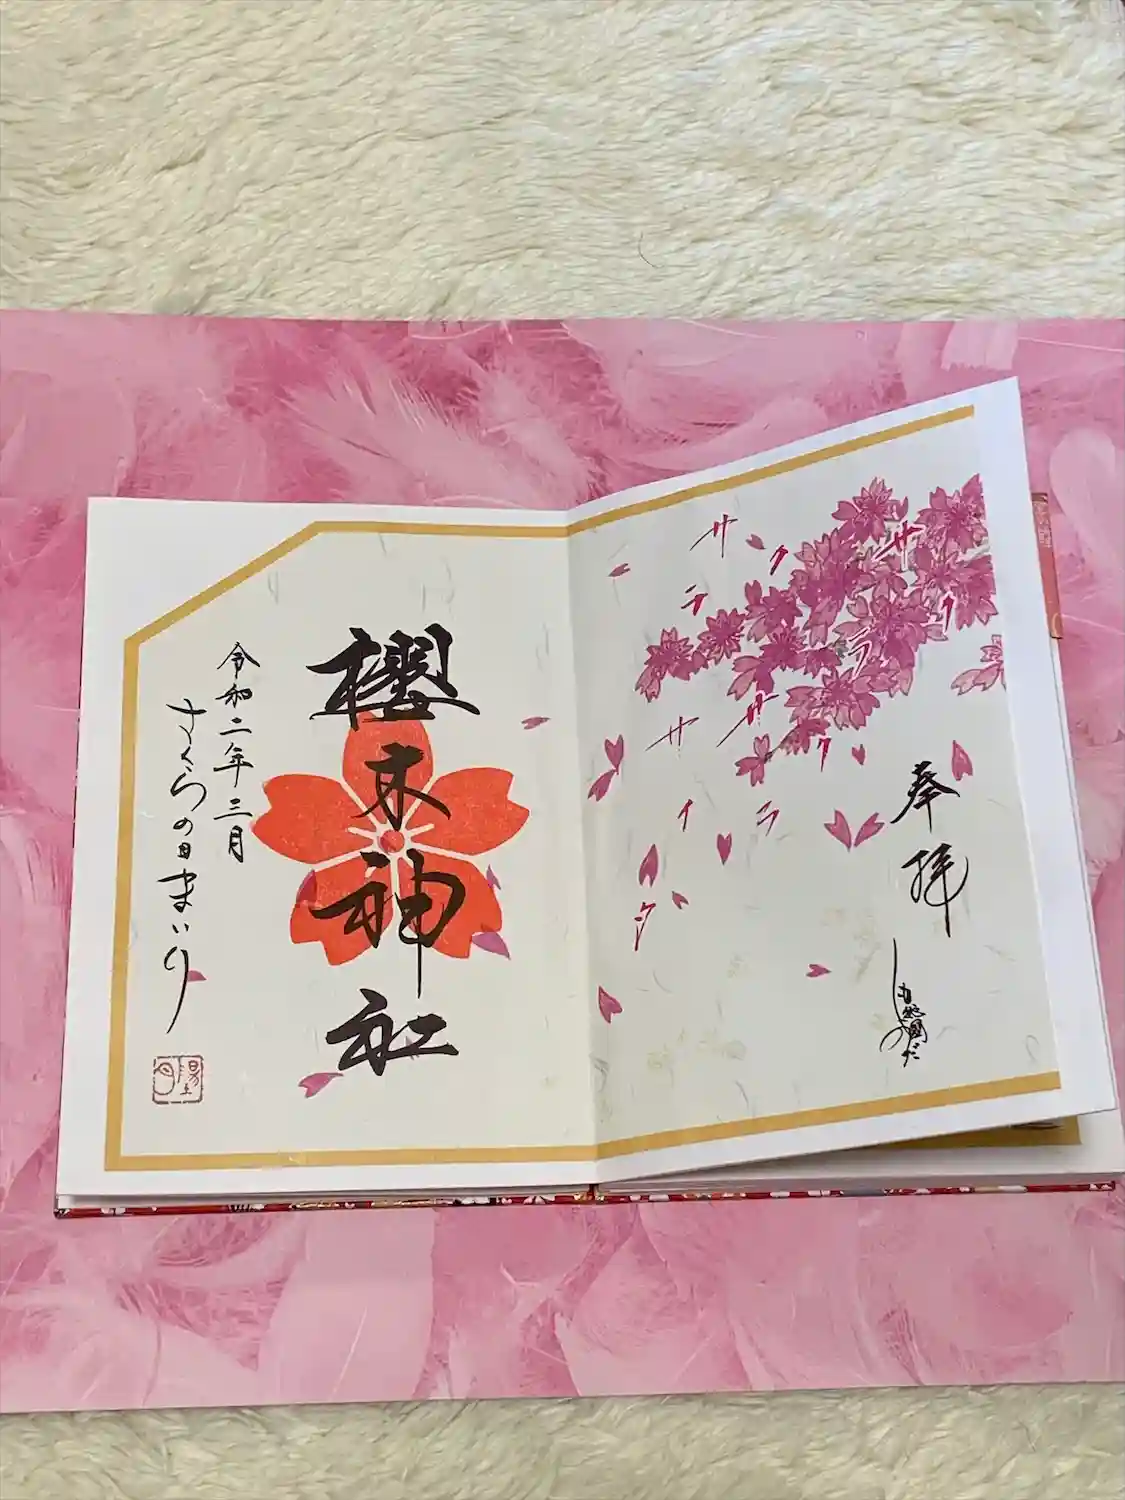 奉拝
サクラ
サクラ
サイタ
サクラ
櫻木神社
令和二年三月
さくらの日まいり